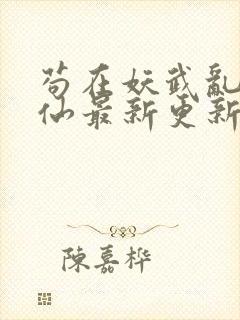 苟在妖武亂
仙最新更新
陳嘉樺